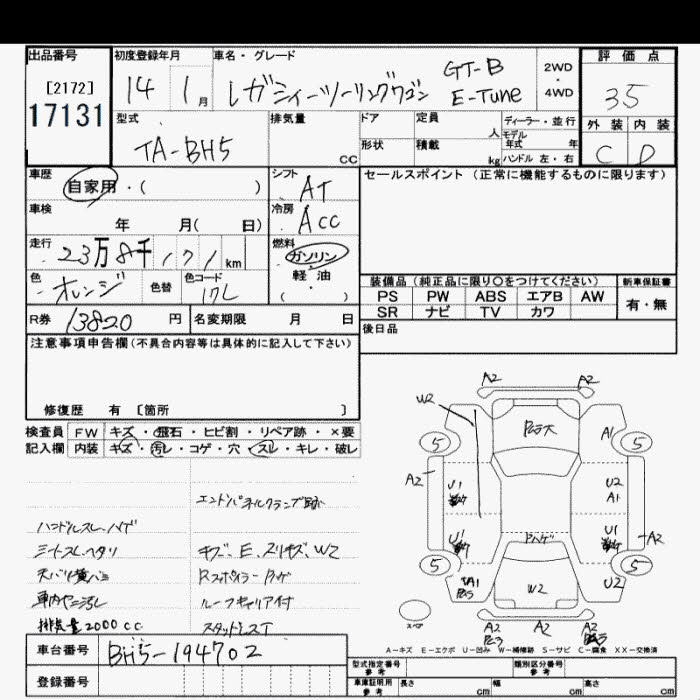 出品番号
[2172]
17131
初度登録年月
14 1月
車名・グレード
レガシィーツーリングワゴン
GT-B
E-Tune
2WD
・
4WD
評価点
35
外装 内装
C D
型式
TA-BH5
排気量
CC
ドア
形状
定員
人
積載
kg
ディーラー・並行
モデル
年式 年
ハンドル 左・右
車歴
自家用・( )
シフト
AT
車検
年 月( 日)
冷房
ACC
走行
23万8千171km
燃料
ガソリン
・
軽・油
( )
色
オレンジ
色替
色コード
17L
R券 13820 円
名変期限 月 日
セールスポイント (正常に機能するものに限ります)
装備品(純正品に限り〇をつけてください)
新車保証書
PS PW ABS エアB AW
SR ナビ TV カワ
有・無
後日品
注意事項申告欄(不具合内容等は具体的に記入して下さい)
修復歴 有 [箇所 ]
検査員
記入欄
FW キズ・飛石・ヒビ割・リペア跡・×要
内装 キズ・汚レ・コゲ・穴・スレ・キレ・破レ
エンドパネルクランプ跡
ハンドルスレ、ハゲ
シートスレ、ヘタリ
キズ、E、スリキズ、W2
天バリ黄バミ
Rスポイラー Pハゲ
車内ヤニ汚レ
ルーフキャリア付
排気量2000cc
スタッドレスT
A2 A2
W2
P飛大
5 A1 5
A2
U1
U2
A1
U1
Pハゲ
U1
A2
5 5
A1
W2
U2
A2 A2 A2
スペア
A-キズ E-エクボ U-凹み W-補修跡 S-サビ C-腐食 XX-交換済
車台番号 BH5-194702
登録番号
型式指定番号
参考
類別区分番号
参考
車庫証明用
参考
長さ cm 幅 cm 高さ cm